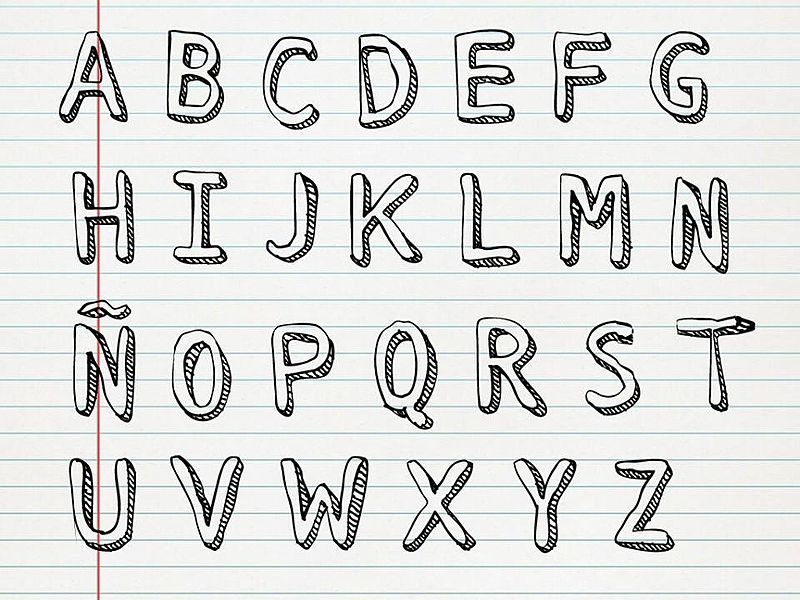 A B C D E F G
H I J K L M N
Ñ O P Q R S T
U V W X Y Z